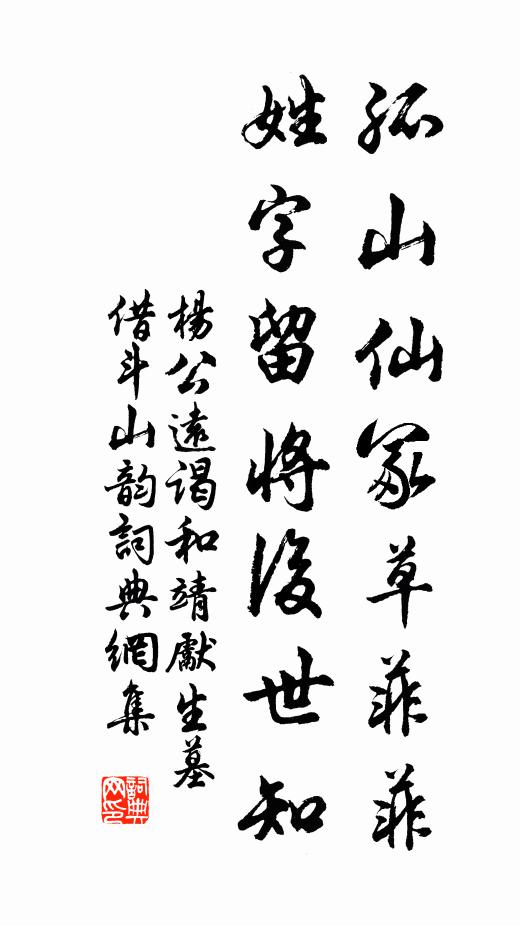 孤山仙冢草菲菲
姓字留將後世知
楊公遠謁和靖獻生墓
借斗山韵詞典網集
詞典网印